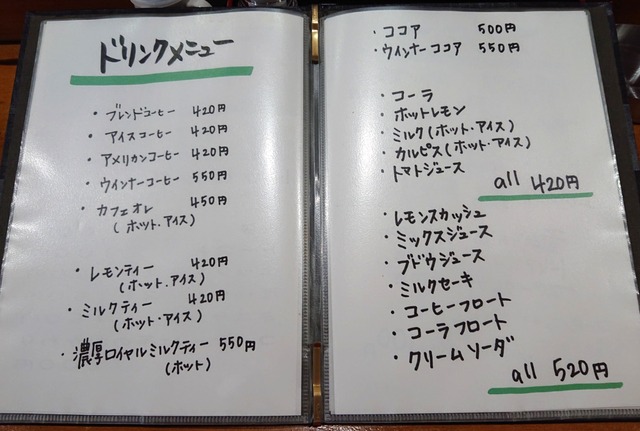 ドリンクメニュー
・ブレンドコーヒー 420円
・アイスコーヒー 420円
・アメリカンコーヒー 420円
・ウインナーコーヒー 550円
・カフェオレ 450円
(ホット・アイス)
・レモンティー 420円
(ホット・アイス)
・ミルクティー 420円
(ホット・アイス)
・濃厚ロイヤルミルクティー 550円
(ホット)
・ココア 500円
・ウインナーココア 550円
・コーラ
・ホットレモン
・ミルク(ホット・アイス)
・カルピス(ホット・アイス)
・トマトジュース
all 420円
・レモンスカッシュ
・ミックスジュース
・ブドウジュース
・ミルクセーキ
・コーヒーフロート
・コーラフロート
・クリームソーダ
all 520円